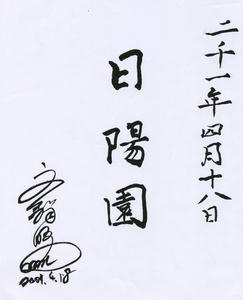 二千一年四月十八日
日陽園
2001.4.18